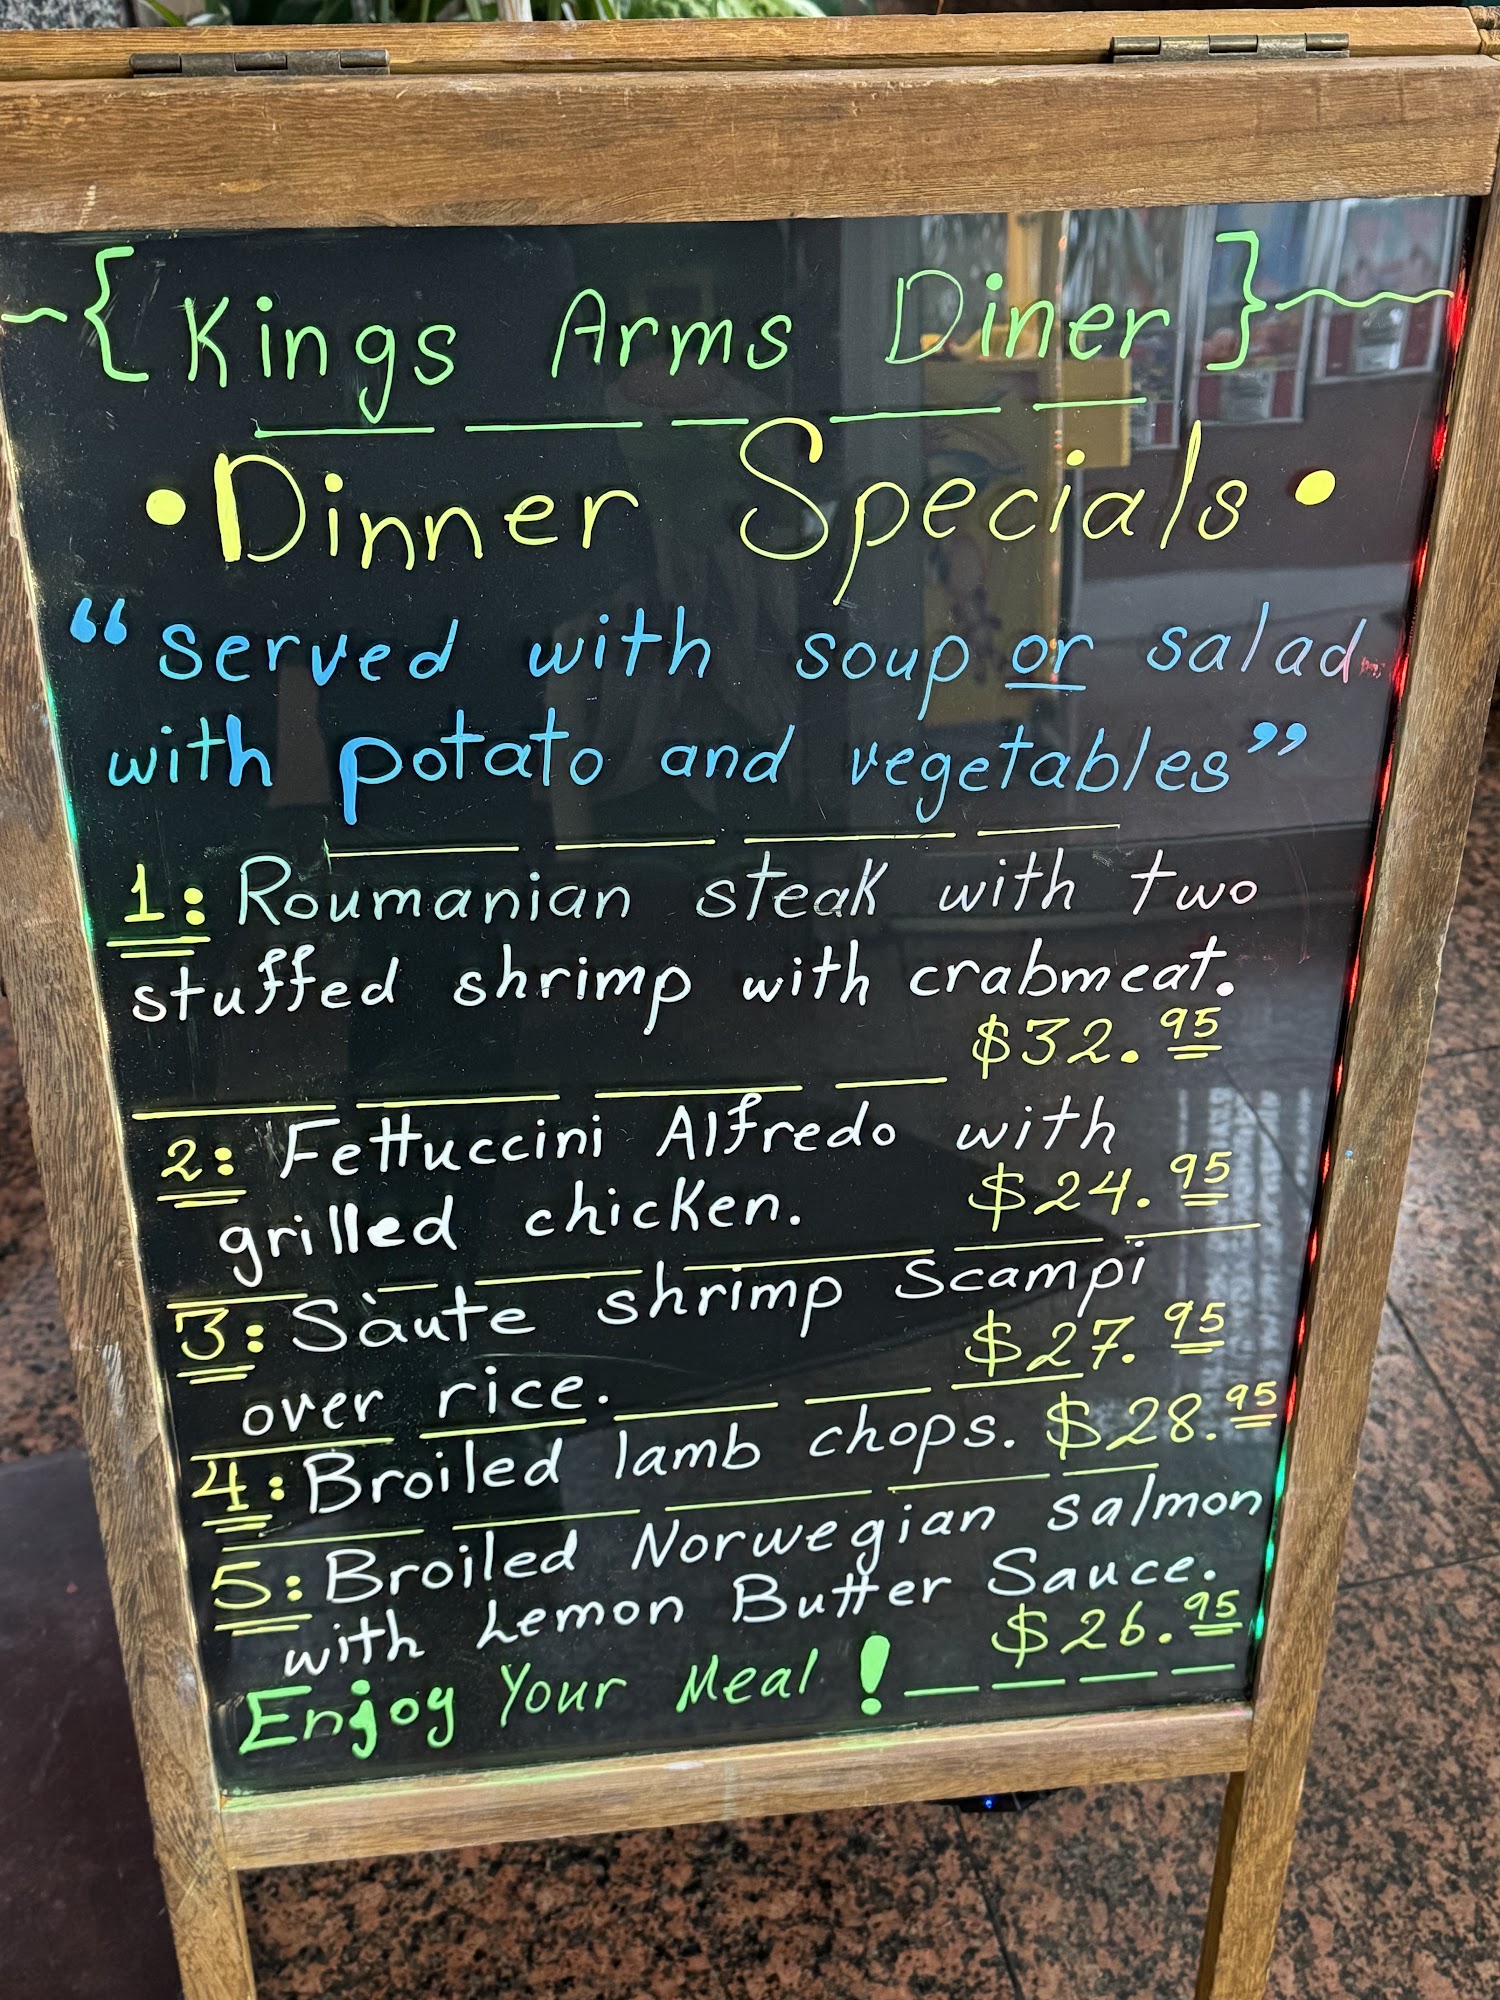 {Kings Arms Diner}
• Dinner Specials •
“served with soup or salad
with potato and vegetables”
1: Roumanian steak with two
stuffed shrimp with crabmeat.
$32.95
2: Fettuccini Alfredo with
grilled chicken. $24.95
3: Sàute shrimp Scampi
over rice. $27.95
4: Broiled lamb chops. $28.95
5: Broiled Norwegian salmon
with Lemon Butter Sauce.
$26.95
Enjoy Your Meal!